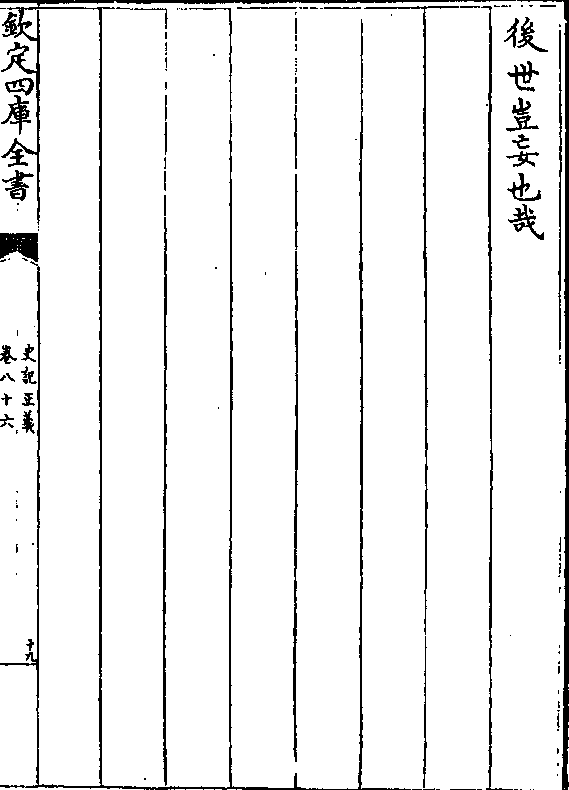 後世豈妄也哉
欽定四庫全書
史記正義
卷八十六
十九